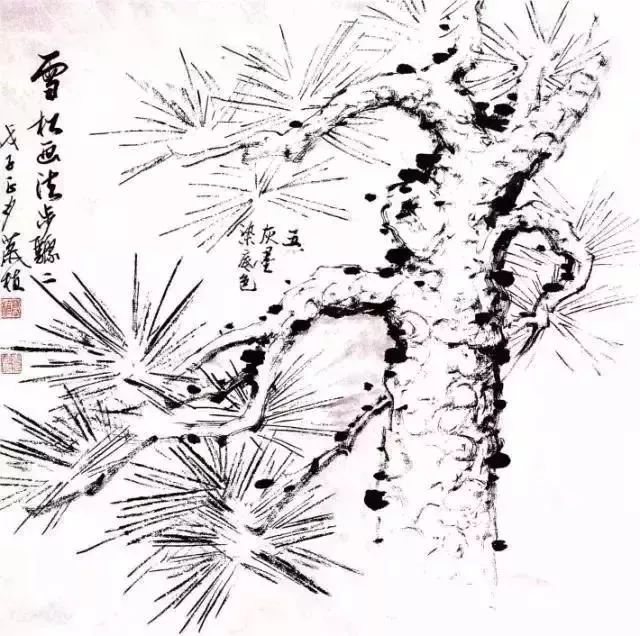 五
灰墨
染底色
雪松画法步骤二
戊子